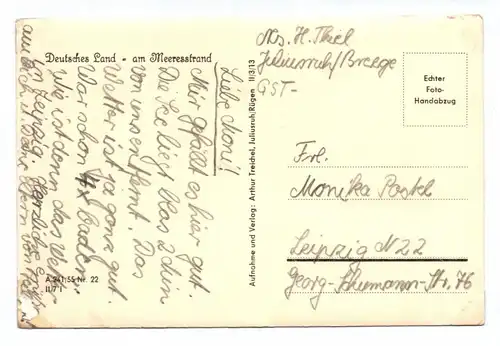 Deutsches Land - am Meeresstrand
Liebe Moni!
Mir gefällt es hier gut.
Die See liegt blos 2 min
von uns entfernt. Das
Wetter ist ganz gut.
War schon 4x baden.
Wie ist denn das Wetter
in Leipzig. Herzliche
an Dich u. Deine Eltern
A 941/55 Nr. 22
II/7/1
Aufnahme und Verlag: Arthur Treichel, Juliusruh/Rügen II/3/13
Abs. H. Thiel
Juliusruh/Breege
GST-
Echter
Foto-
Handabzug
Frl.
Monika Postel
Leipzig N 22
Georg-Schumann-Str. 76